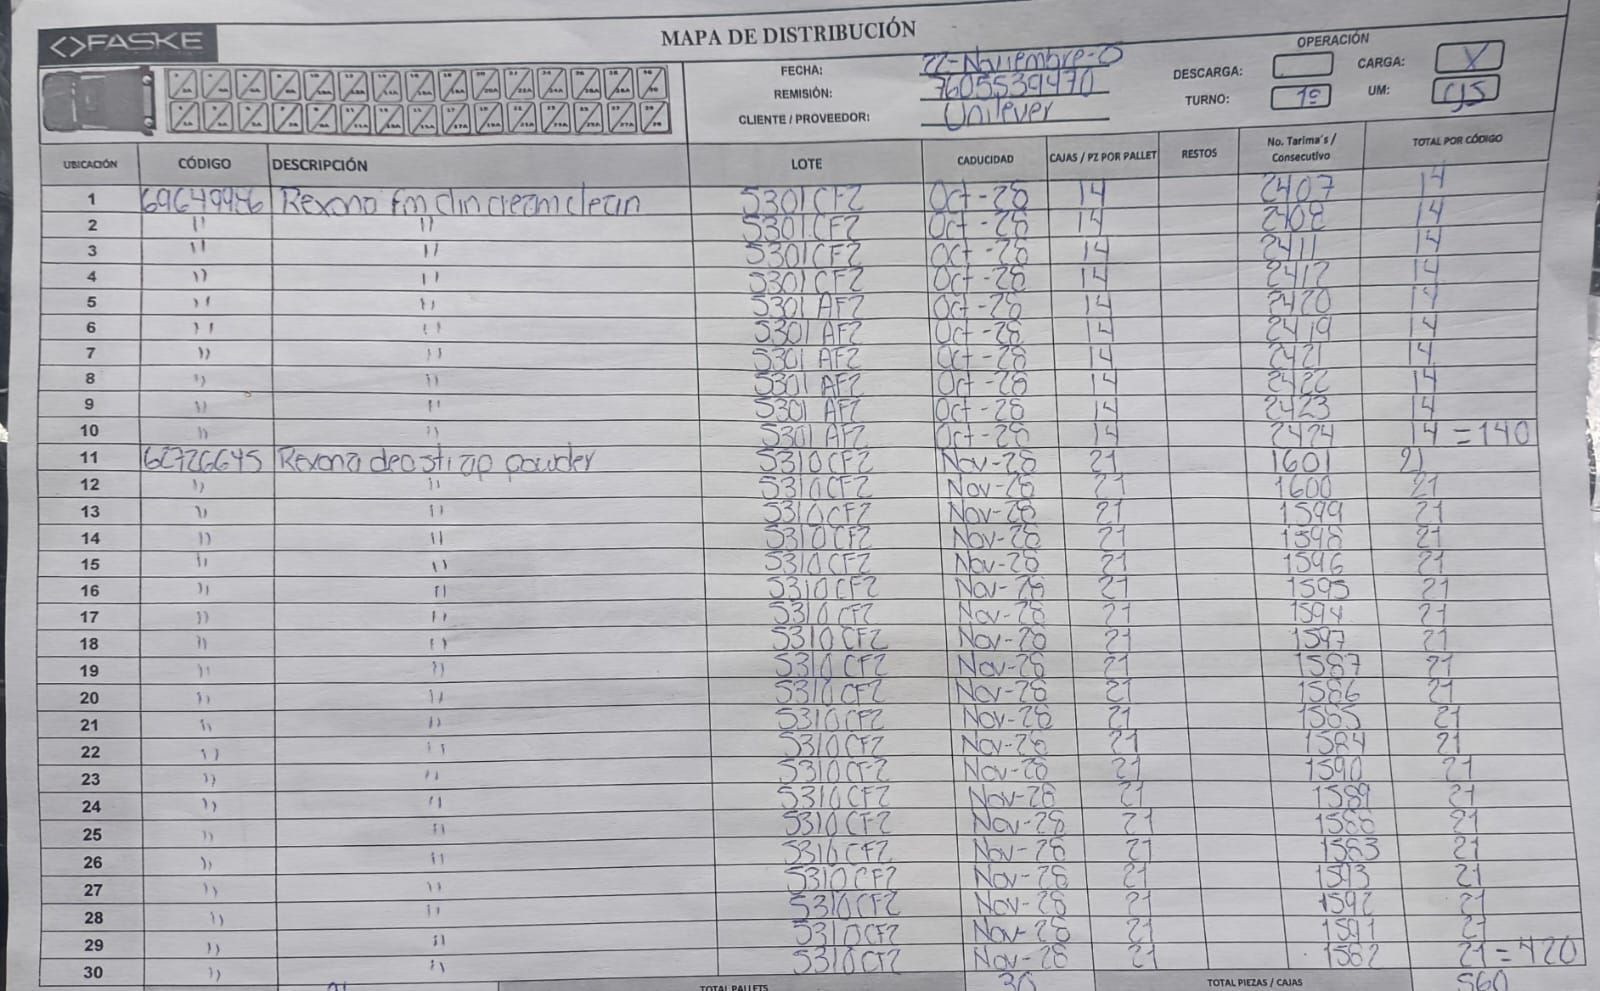 <>FASKE
MAPA DE DISTRIBUCIÓN
FECHA: 22-Noviembre-25
REMISIÓN: 7605539470
CLIENTE / PROVEEDOR: Unilever
OPERACIÓN
DESCARGA: CARGA: X
TURNO: 1º UM: cjs
UBICACIÓN CÓDIGO DESCRIPCIÓN LOTE CADUCIDAD CAJAS / PZ POR PALLET RESTOS No. Tarima´s / Consecutivo TOTAL POR CÓDIGO
1 69649986 Rexona fm clin cream clean 5301CF2 Oct-28 14 2407 14
2 " " 5301CF2 Oct-28 14 2408 14
3 " " 5301CF2 Oct-28 14 2411 14
4 " " 5301CF2 Oct-28 14 2412 14
5 " " 5301 AF2 Oct-28 14 2420 14
6 " " 5301 AF2 Oct-28 14 2419 14
7 " " 5301 AF2 Oct-28 14 2421 14
8 " " 5301 AF2 Oct-28 14 2422 14
9 " " 5301 AF2 Oct-28 14 2423 14
10 " " 5301 AF2 Oct-28 14 2424 14 = 140
11 Rexona deo sti ap powder 5310CF2 Nov-28 21 1601 21
12 " " 5310CF2 Nov-28 21 1600 21
13 " " 5310CF2 Nov-28 21 1599 21
14 " " 5310CF2 Nov-28 21 1598 21
15 " " 5310CF2 Nov-28 21 1596 21
16 " " 5310CF2 Nov-28 21 1595 21
17 " " 5310CF2 Nov-28 21 1594 21
18 " " 5310CF2 Nov-28 21 1597 21
19 " " 5310CF2 Nov-28 21 1587 21
20 " " 5310CF2 Nov-28 21 1586 21
21 " " 5310CF2 Nov-28 21 1585 21
22 " " 5310CF2 Nov-28 21 1584 21
23 " " 5310CF2 Nov-28 21 1590 21
24 " " 5310CF2 Nov-28 21 1589 21
25 " " 5310CF2 Nov-28 21 1588 21
26 " " 5310CF2 Nov-28 21 1583 21
27 " " 5310CF2 Nov-28 21 1593 21
28 " " 5310CF2 Nov-28 21 1592 21
29 " " 5310CF2 Nov-28 21 1591 21
30 " " 5310CF2 Nov-28 21 1582 21 = 420
TOTAL PALLETS 30 TOTAL PIEZAS / CAJAS 560